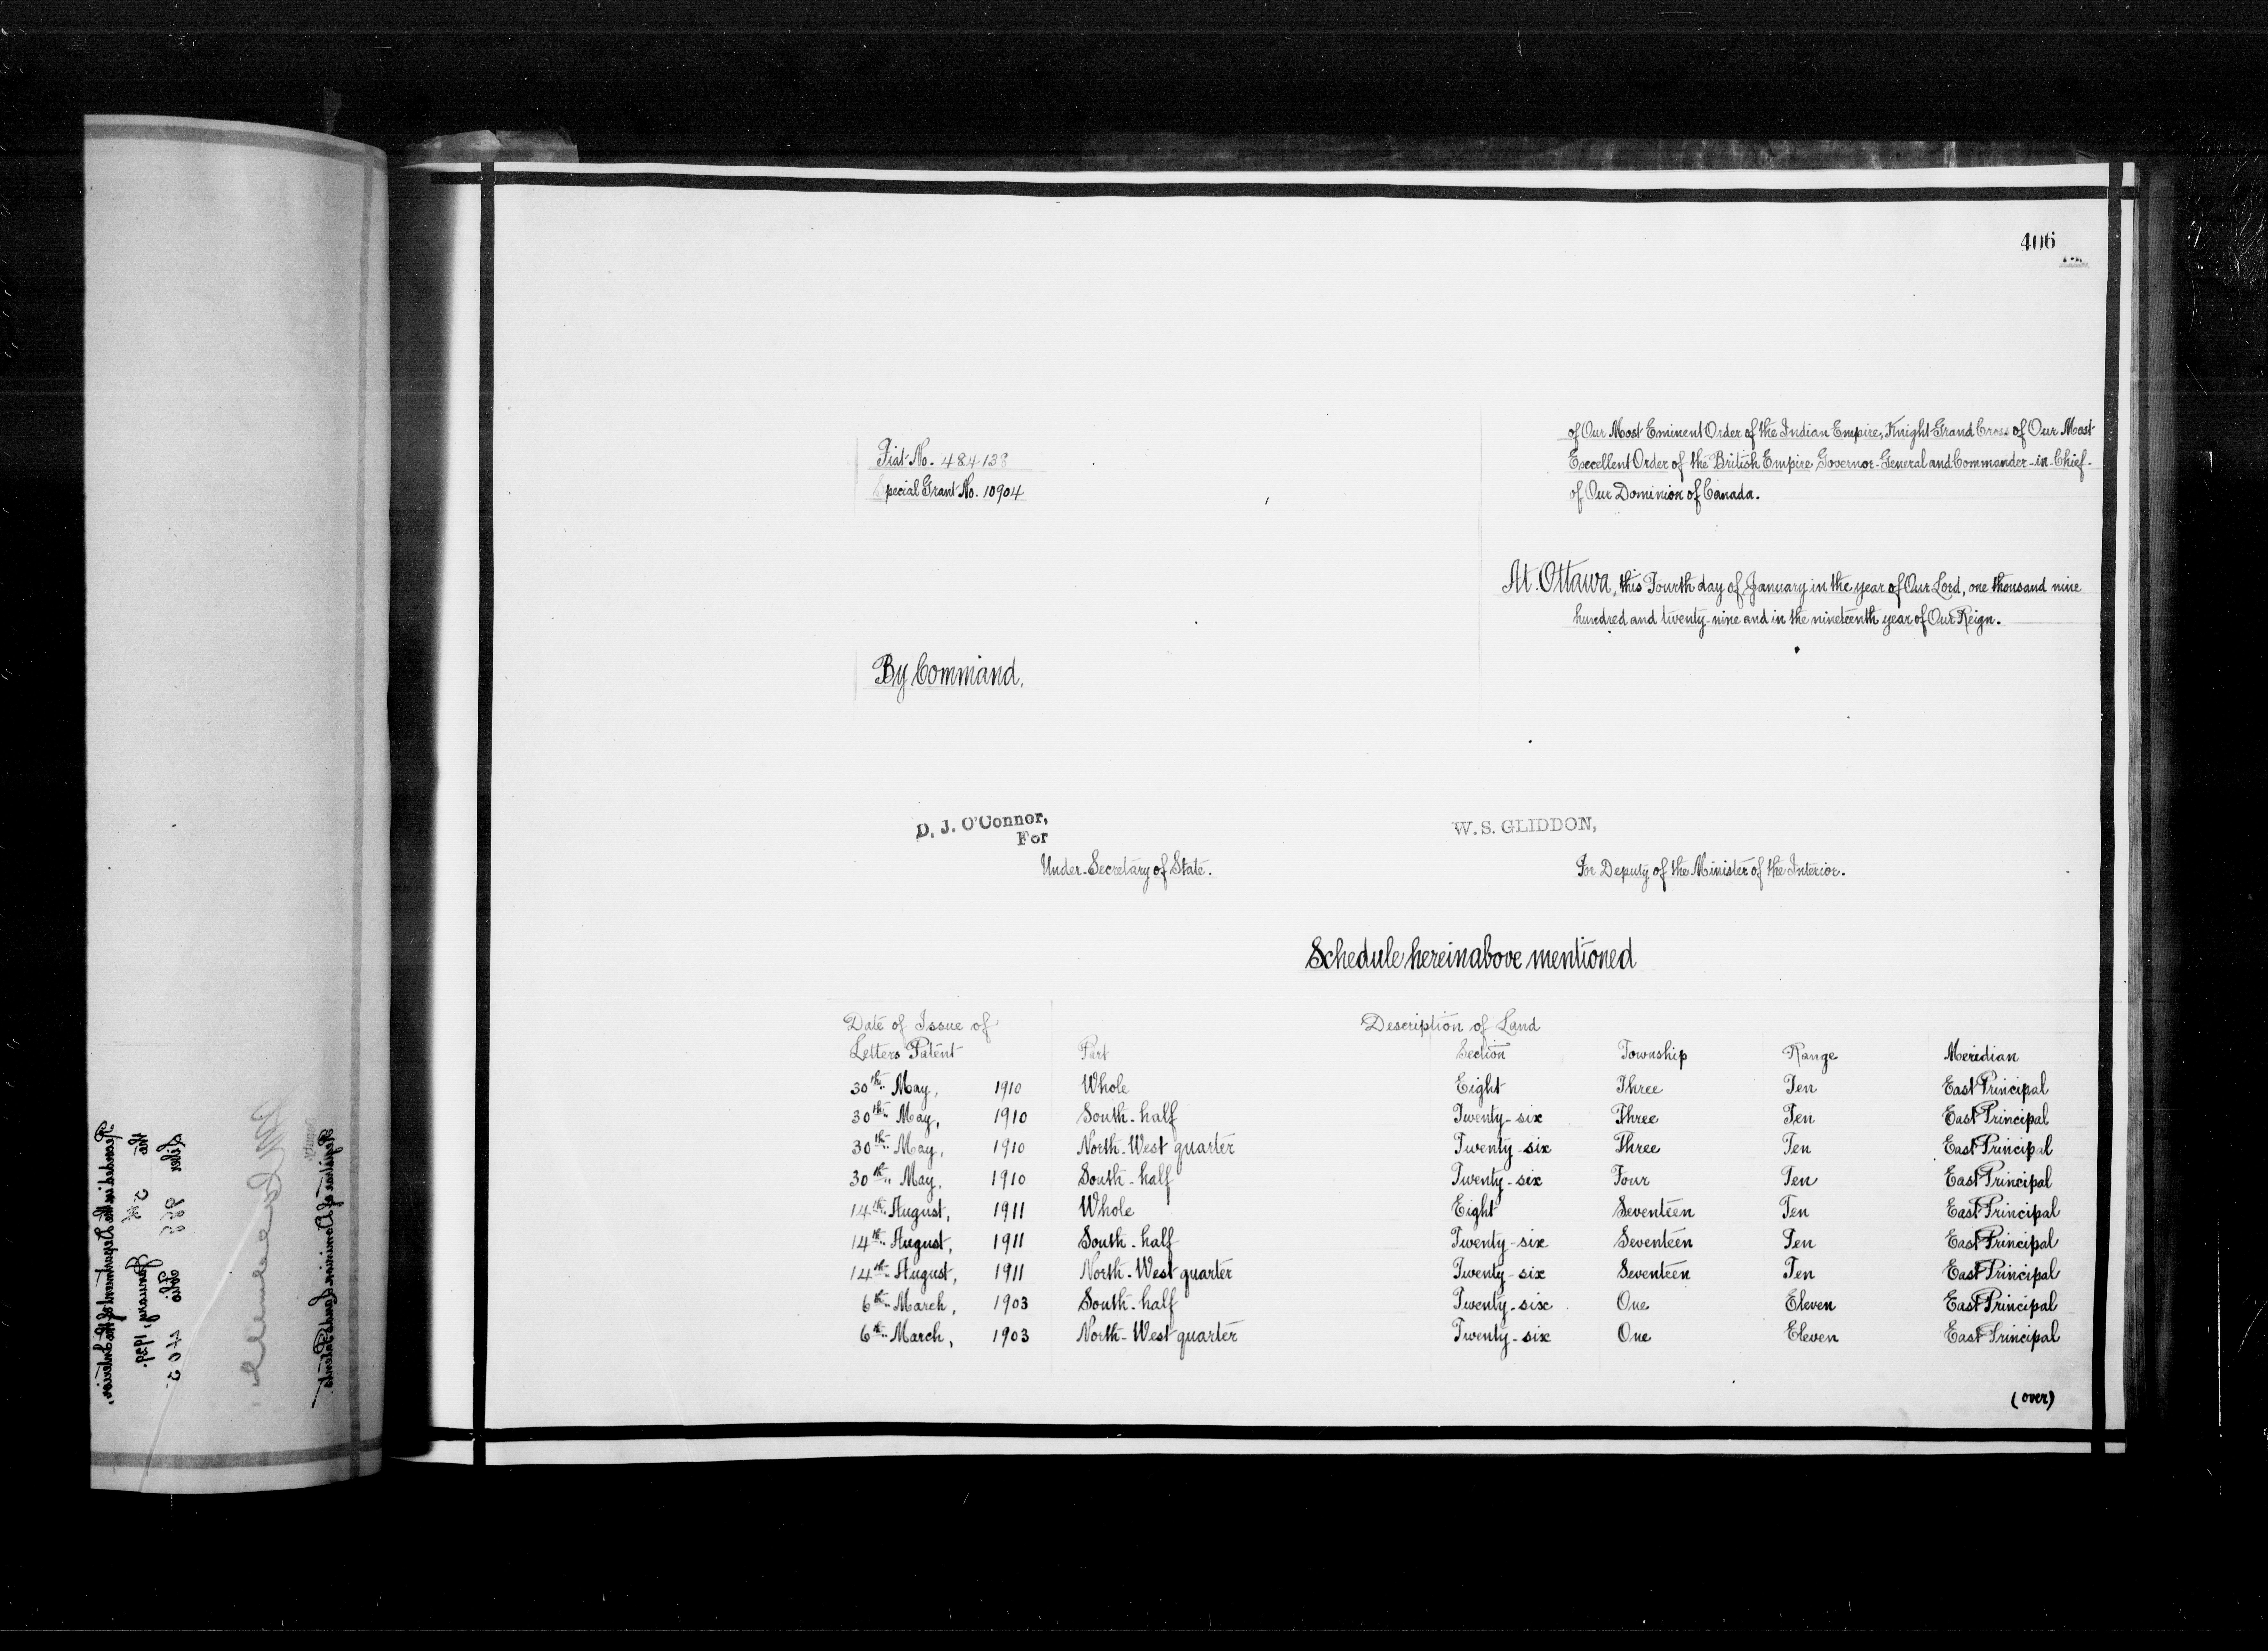 406
of Our Most Eminent Order of the Indian Empire, Knight Grand Cross of Our Most
Excellent Order of the British Empire, Governor-General and Commander-in-Chief-
of Our Dominion of Canada.
Fiat No. 484138
Special Grant No. 10904
At Ottawa, this Fourth day of January in the year of Our Lord, one thousand nine
hundred and twenty-nine and in the nineteenth year of Our Reign.
By Command,
D. J. O'Connor,
For
Under-Secretary of State.
W. S. GLIDDON,
For Deputy of the Minister of the Interior.
Schedule hereinabove mentioned
Date of Issue of Description of Land
Letters Patent Part Section Township Range Meridian
30th May, 1910 Whole Eight Three Ten East Principal
30th May, 1910 South-half Twenty-six Three Ten East Principal
30th May, 1910 North-West quarter Twenty-six Three Ten East Principal
30th May. 1910 South-half Twenty-six Four Ten East Principal
14th August, 1911 Whole Eight Seventeen Ten East Principal
14th August, 1911 South-half Twenty-six Seventeen Ten East Principal
14th August, 1911 North-West quarter Twenty-six Seventeen Ten East Principal
6th March, 1903 South-half Twenty-six One Eleven East Principal
6th March, 1903 North-West quarter Twenty-six One Eleven East Principal
(over)
Recorded in the Department of the Interior,
the 5th January, 1929.
Liber 228 Folio 405
Deputy
Registrar of Dominion Lands Patents.